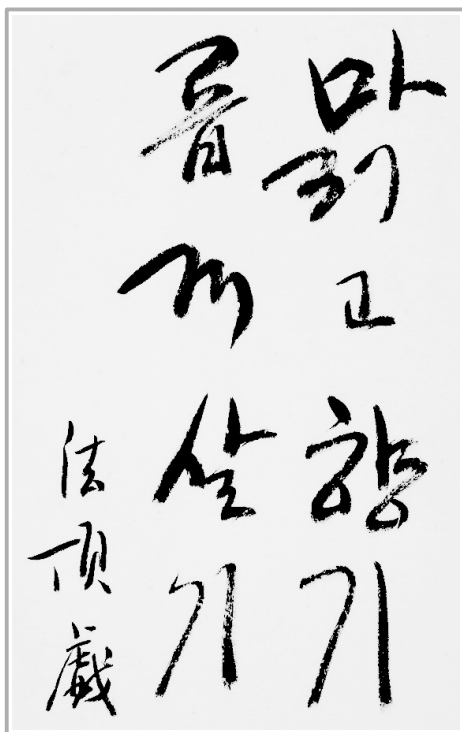 맑고 향기
롭게 살기
法頂戱